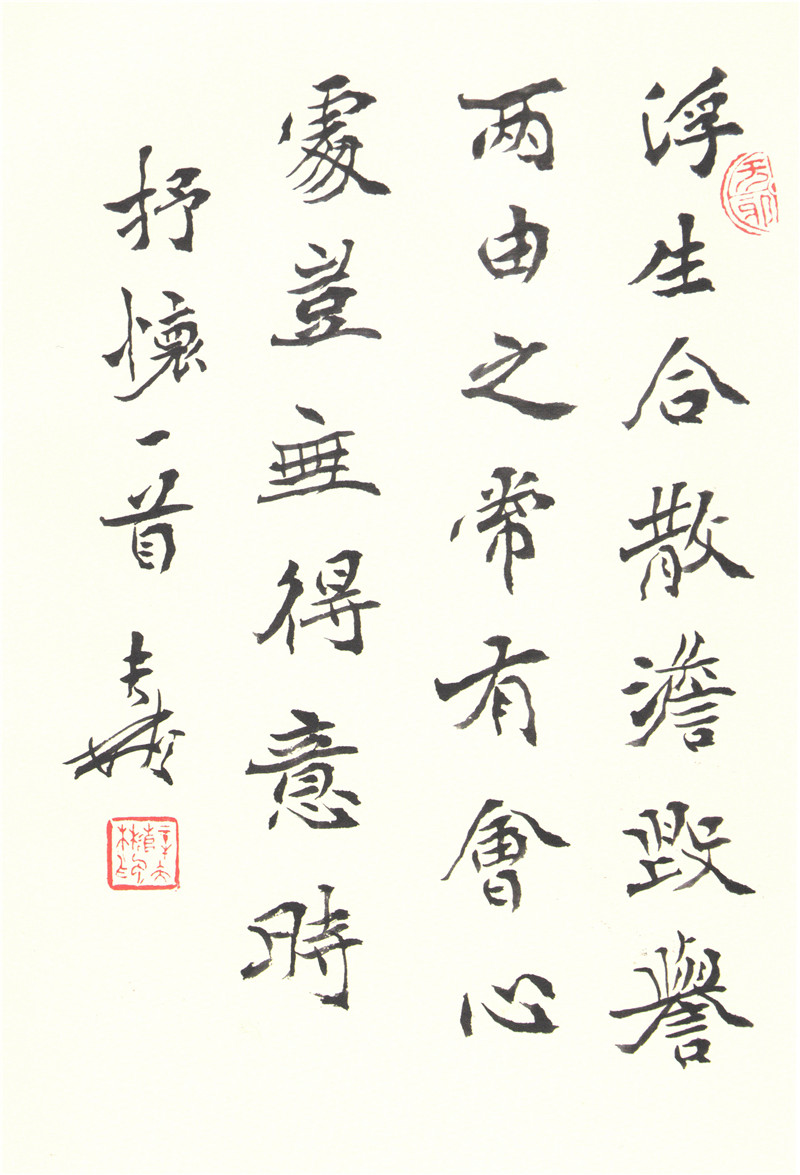 浮生合散澹毀譽
兩由之常有會心
處豈無得意時
抒懷一首